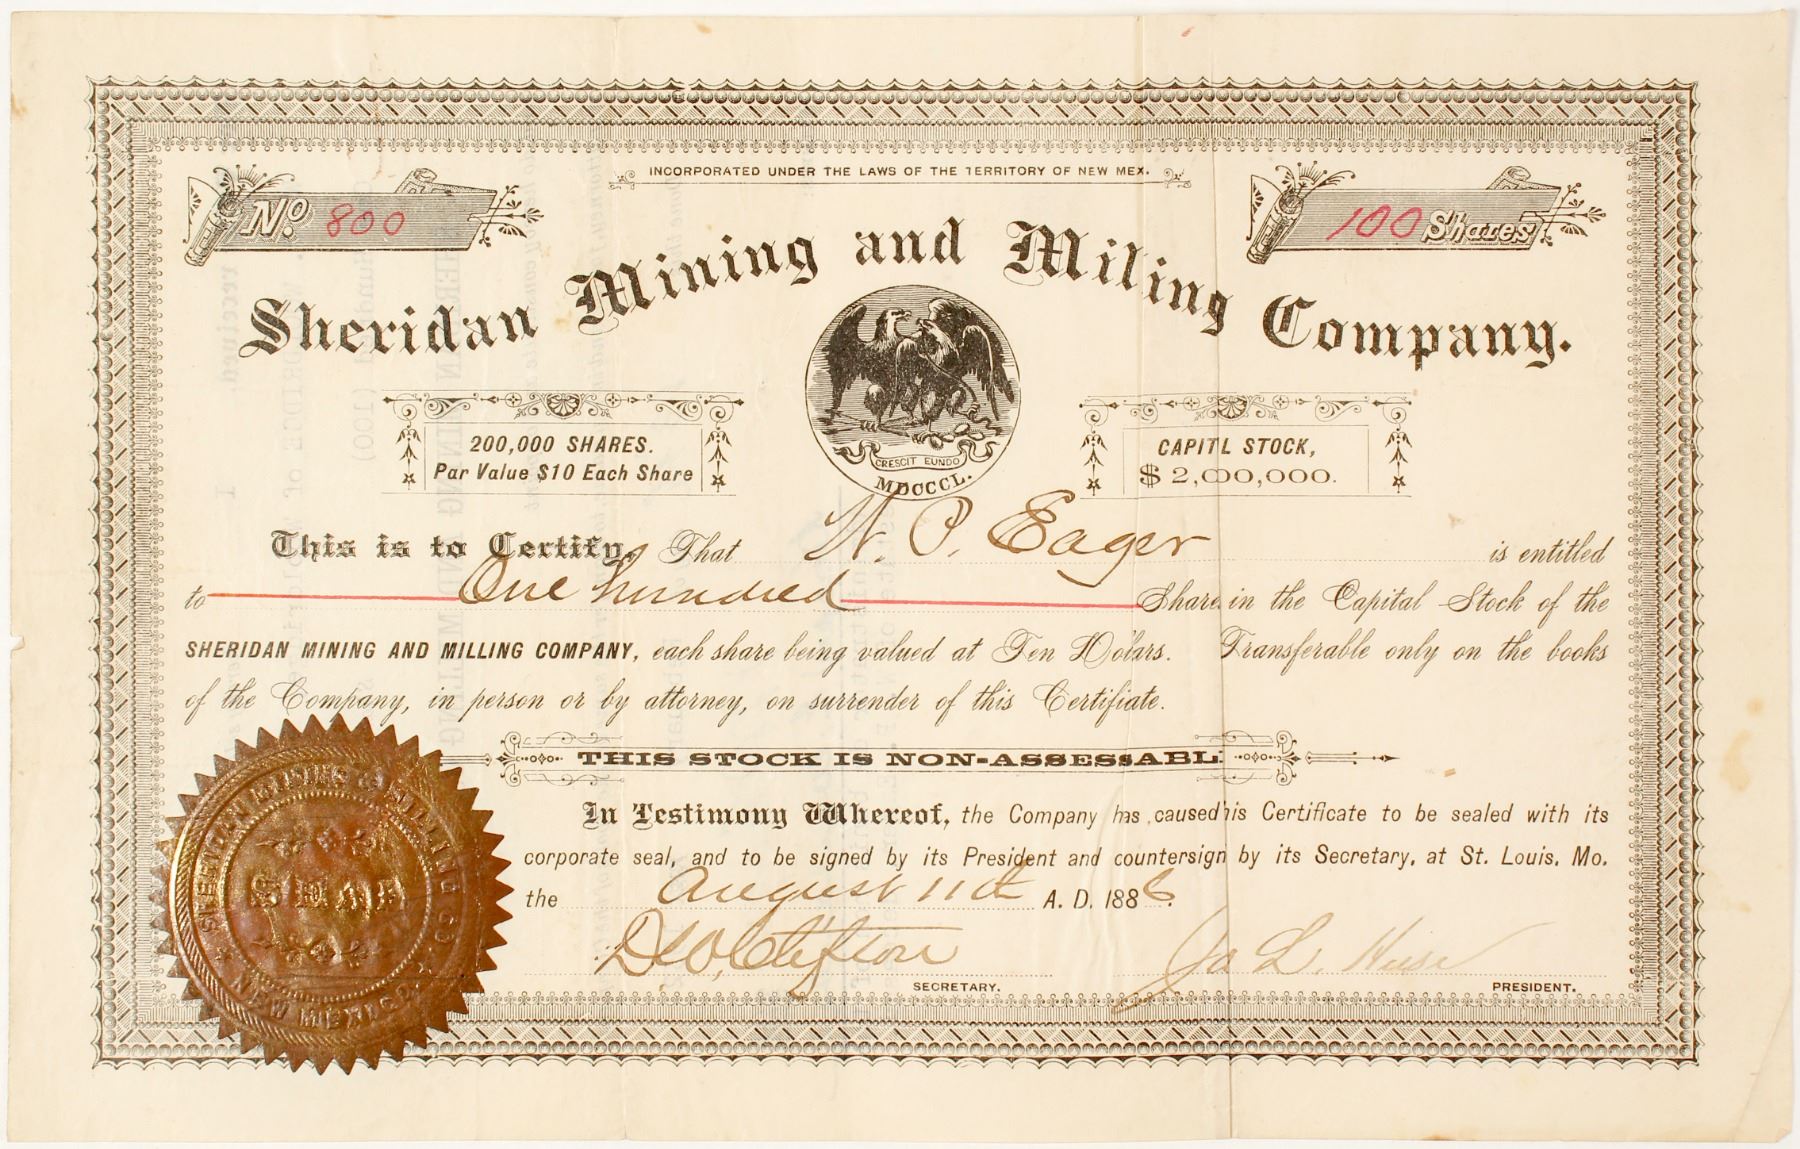 INCORPORATED UNDER THE LAWS OF THE TERRITORY OF NEW MEX.
No. 800
100 Shares
Sheridan Mining and Miling Company.
200,000 SHARES.
Par Value $10 Each Share
CRESCIT EUNDO
MDCCCL.
CAPITL STOCK,
$ 2,000,000.
This is to Certify, That W. P. Eager is entitled
to One hundred Share in the Capital Stock of the
SHERIDAN MINING AND MILLING COMPANY, each share being valued at Ten Dolars. Transferable only on the books
of the Company, in person or by attorney, on surrender of this Certifiate.
THIS STOCK IS NON-ASSESSABL
In Testimony Whereof, the Company has caused his Certificate to be sealed with its
corporate seal, and to be signed by its President and countersign by its Secretary, at St. Louis, Mo.
the August 11th A. D. 1886.
SECRETARY.
PRESIDENT.
SHERIDAN MINING & MILLING CO.
SEAL
NEW MEXICO